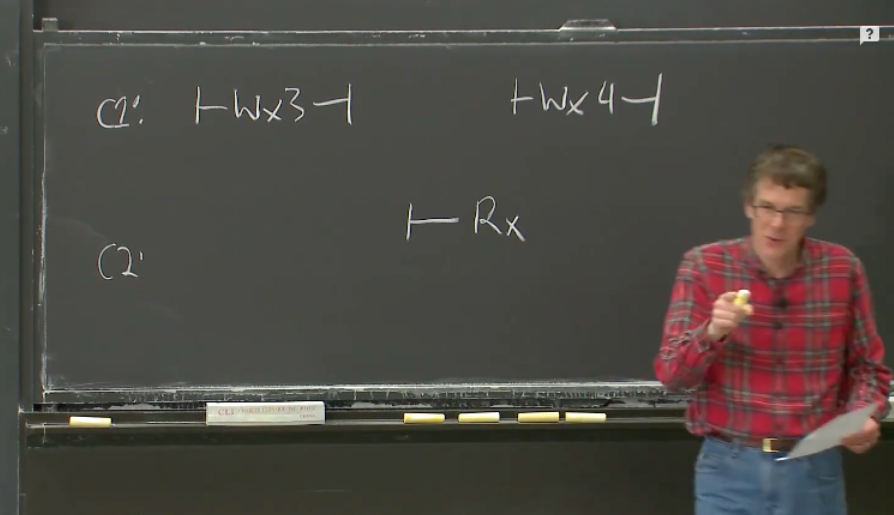 C1: ⊢Wx3⊣ ⊢Wx4⊣
⊢ Rx
C2:
?